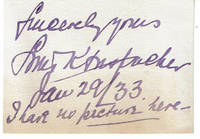 Sincerely yours
Jan 29/33
I have no picture here—